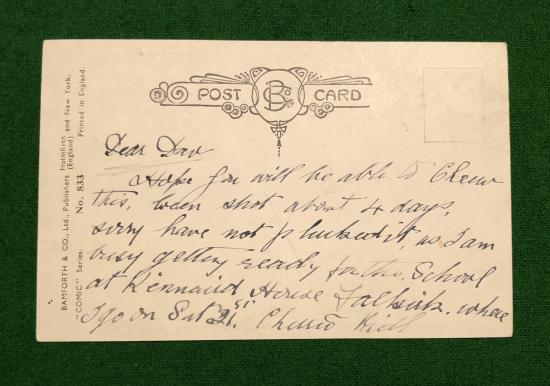 BAMFORTH & CO., Ltd., Publishers (England) Holmfirth and New York.
"COMIC" Series. No. 833 Printed in England.
POST CARD
B & Co Ltd
Dear Dav
Hope you will be able to Chew
this, been shot about 4 days,
sorry have not plucked it, as I am
busy getting ready for the School
at Kennaird House Falkirk. where
I go on Sat 21st. Cheerio